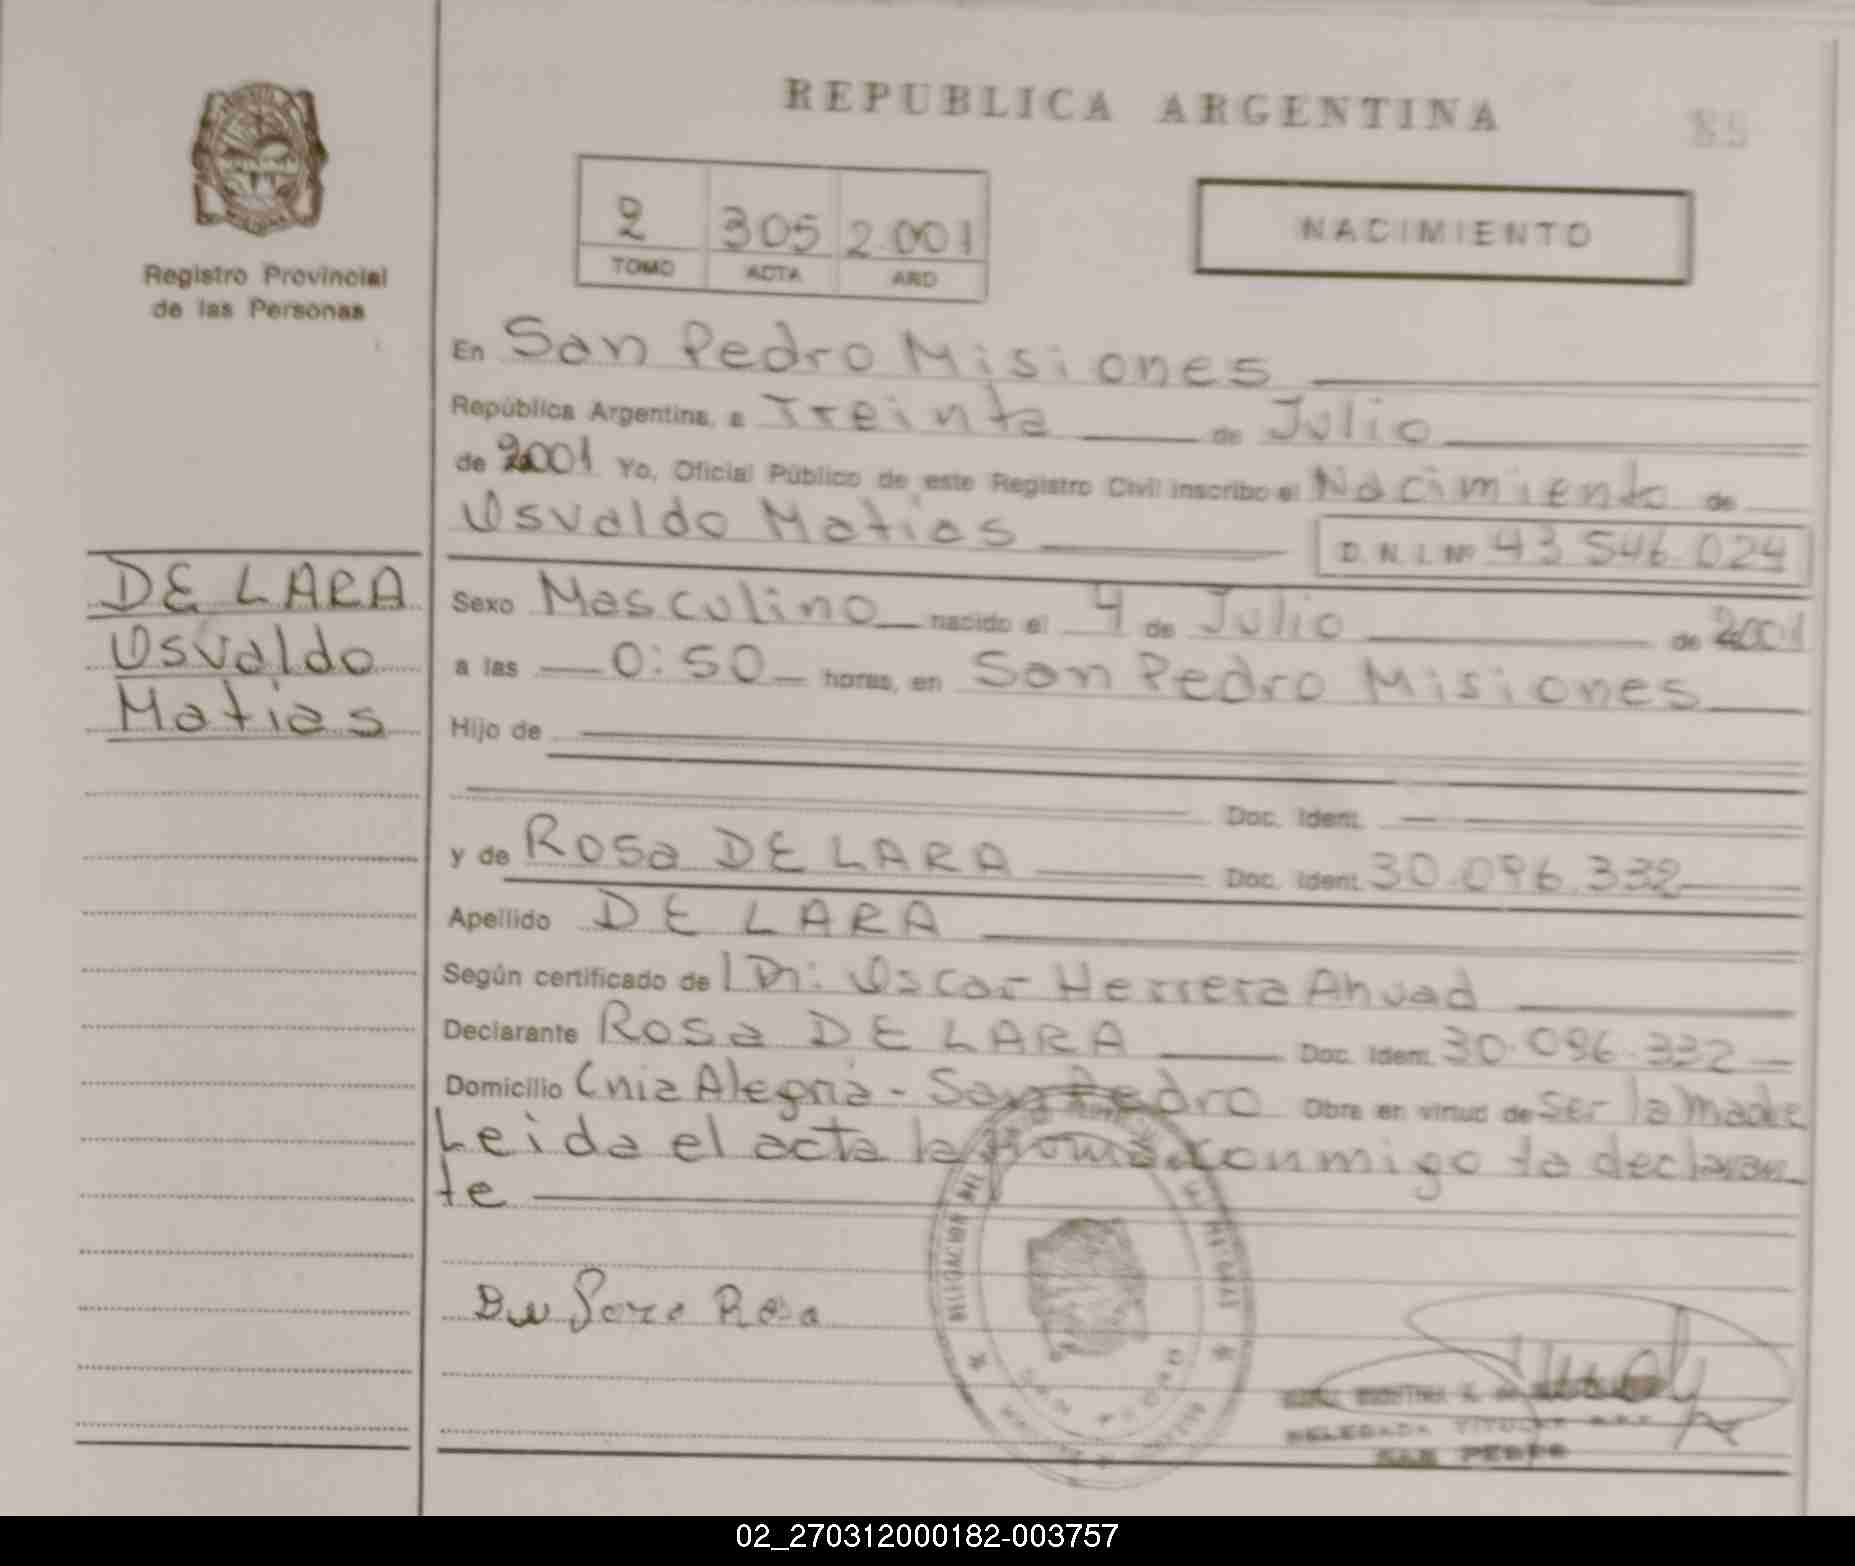 REPUBLICA ARGENTINA
85
Registro Provincial
de las Personas
2 305 2.001
TOMO ACTA AÑO
NACIMIENTO
En San Pedro Misiones
República Argentina, a Treinta de Julio
de 2001 Yo, Oficial Público de este Registro Civil inscribo el Nacimiento de
Osvaldo Matias D.N.I. Nº 43 546 024
DE LARA
Osvaldo
Matias
Sexo Masculino nacido el 4 de Julio de 2001
a las 0:50 horas, en San Pedro Misiones
Hijo de
Doc. Ident.
y de Rosa DE LARA Doc. Ident. 30.096.332
Apellido DE LARA
Según certificado de Dr: Oscar Herrera Ahuad
Declarante Rosa DE LARA Doc. Ident. 30.096.332
Domicilio Cnia Alegria - San Pedro Obra en virtud de ser la madre
Leida el acta la firma conmigo la declaran
te
DELEGACION DEL
Rosa
DELEGADA TITULAR
SAN PEDRO
02_270312000182-003757